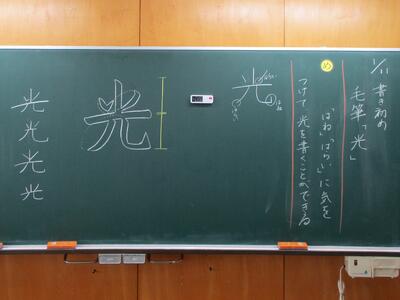 1/11 書き初め
毛筆「光」
め
「はね」「はらい」に気を
つけて光を書くことができる
光
はらい
はね
光
光
光
光
光